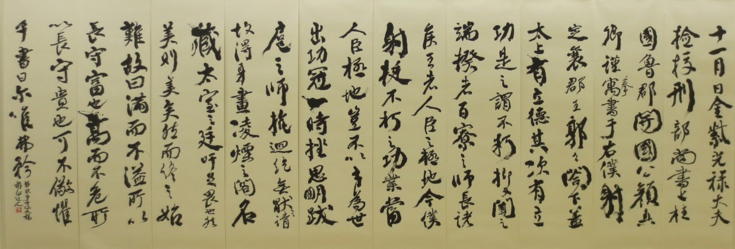 十一月日金紫光禄大夫
檢校刑部尚書上柱
國魯郡開國公顏真
卿謹寓書于右僕射
定襄郡王郭公閤下蓋
太上有立德其次有立
功是之謂不朽抑又聞之
端揆者百寮之師長諸
侯王者人臣之極地今僕
射挺不朽之功業當
人臣極地豈不以才為世
出功冠一時挫思明跋
扈之師抗迴紇無猒請
故得身畫凌煙之閣名
藏太室之廷吁足畏也
美則美矣然而終之始
難故曰滿而不溢所以
長守富也高而不危所
以長守貴也可不儆懼
乎書曰尔唯弗矜